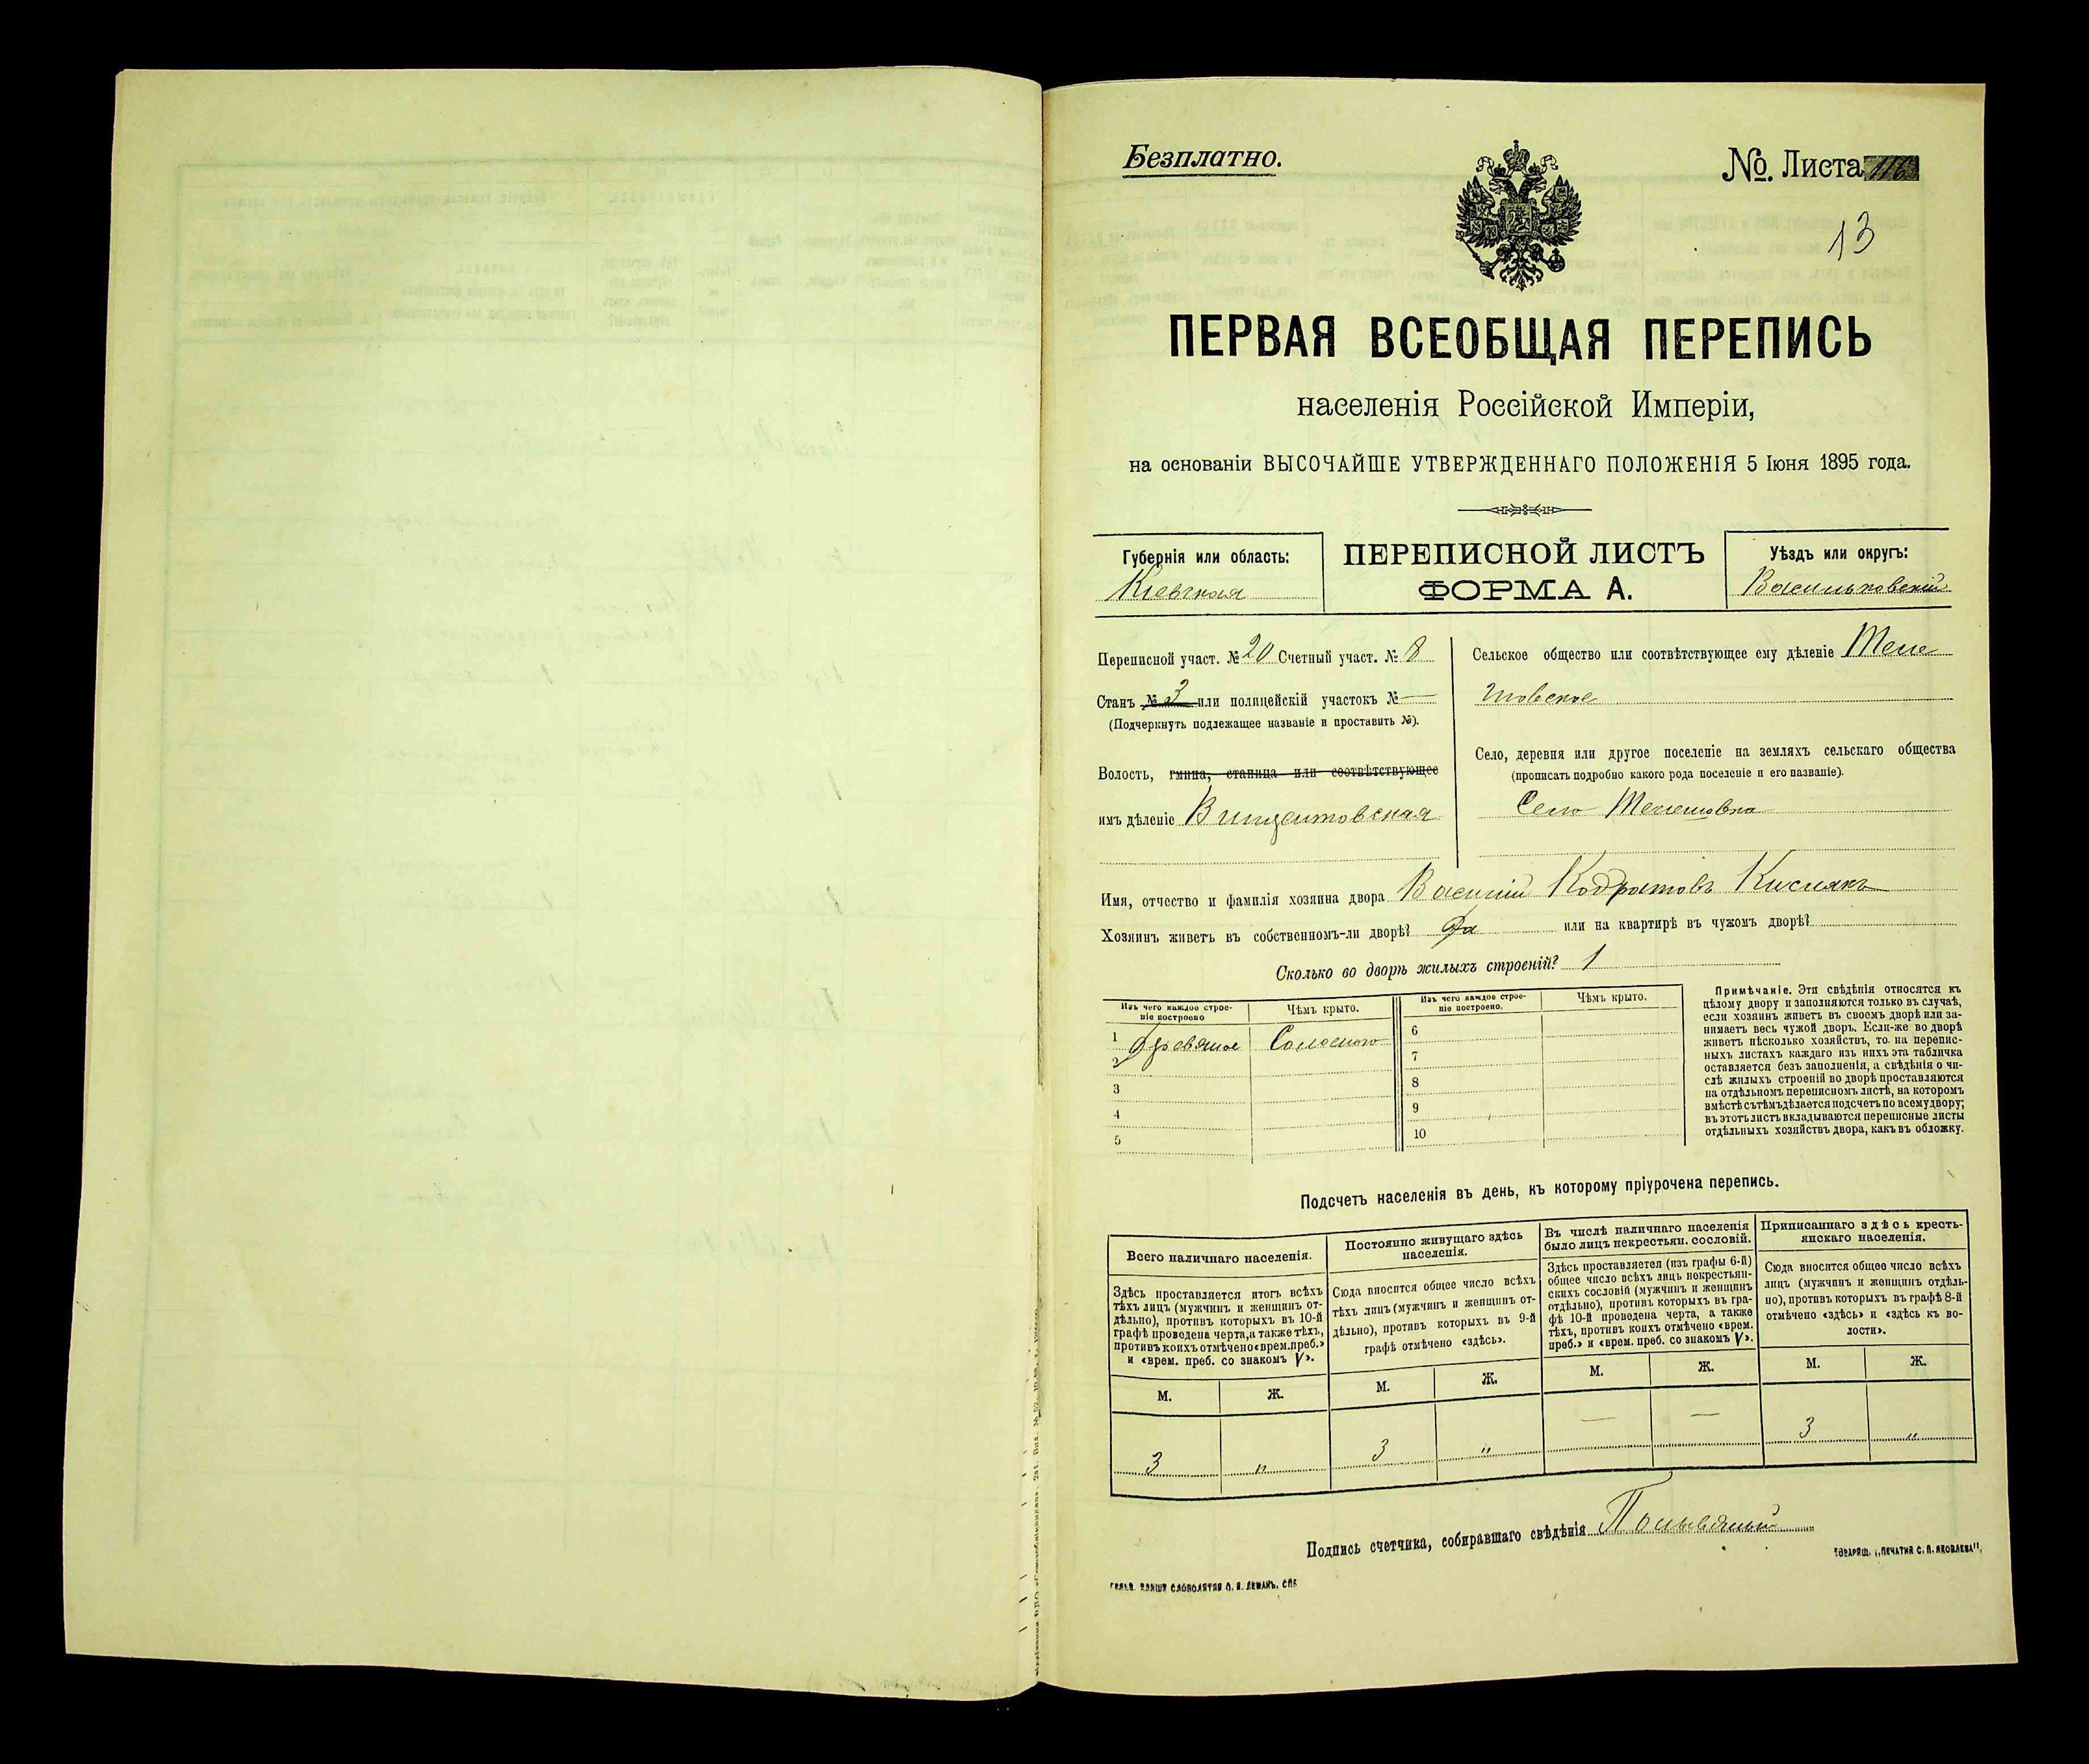 Безплатно.
№. Листа 116
13
ПЕРВАЯ ВСЕОБЩАЯ ПЕРЕПИСЬ
населенія Россійской Имперіи,
на основаніи ВЫСОЧАЙШЕ УТВЕРЖДЕННАГО ПОЛОЖЕНІЯ 5 Іюня 1895 года.
Губернія или область:
Кіевская
ПЕРЕПИСНОЙ ЛИСТЪ
ФОРМА А.
Уѣздъ или округъ:
Васильковскій
Переписной участ. № 20 Счетный участ. № 8
Станъ № 3 или полицейскій участокъ № —
(Подчеркнуть подлежащее названіе и проставить №).
Волость, гмина, станица или соотвѣтствующее
имъ дѣленіе Винцентовская
Сельское общество или соотвѣтствующее ему дѣленіе
Село, деревня или другое поселеніе на земляхъ сельскаго общества
(прописать подробно какого рода поселеніе и его названіе).
Село
Имя, отчество и фамилія хозяина двора Василій Кодратовъ Кислякъ
Хозяинъ живетъ въ собственномъ-ли дворѣ? Да или на квартирѣ въ чужомъ дворѣ?
Сколько во дворѣ жилыхъ строеній? 1
Изъ чего каждое строе-
ніе построено
Чѣмъ крыто.
Изъ чего каждое строе-
ніе построено.
Чѣмъ крыто.
1 Деревяное Соломою
2
3
4
5
6
7
8
9
10
Примѣчаніе. Эти свѣдѣнія относятся къ
цѣлому двору и заполняются только въ случаѣ,
если хозяинъ живетъ въ своемъ дворѣ или за-
нимаетъ весь чужой дворъ. Если-же во дворѣ
живетъ нѣсколько хозяйствъ, то на перепис-
ныхъ листахъ каждаго изъ нихъ эта табличка
оставляется безъ заполненія, а свѣдѣнія о чи-
слѣ жилыхъ строеній во дворѣ проставляются
на отдѣльномъ переписномъ листѣ, на которомъ
вмѣстѣ съ тѣмъ дѣлается подсчетъ по всему двору;
въ этотъ листъ вкладываются переписные листы
отдѣльныхъ хозяйствъ двора, какъ въ обложку.
Подсчетъ населенія въ день, къ которому пріурочена перепись.
Всего наличнаго населенія.
Здѣсь проставляется итогъ всѣхъ
тѣхъ лицъ (мужчинъ и женщинъ от-
дѣльно), противъ которыхъ въ 10-й
графѣ проведена черта, а также тѣхъ,
противъ коихъ отмѣчено «врем. преб.»
и «врем. преб. со знакомъ V».
М. Ж.
3 „
Постоянно живущаго здѣсь
населенія.
Сюда вносится общее число всѣхъ
тѣхъ лицъ (мужчинъ и женщинъ от-
дѣльно), противъ которыхъ въ 9-й
графѣ отмѣчено «здѣсь».
М. Ж.
3 „
Въ числѣ наличнаго населенія
было лицъ некрестьян. сословій.
Здѣсь проставляется (изъ графы 6-й)
общее число всѣхъ лицъ некрестьян-
скихъ сословій (мужчинъ и женщинъ
отдѣльно), противъ которыхъ въ гра-
фѣ 10-й проведена черта, а также
тѣхъ, противъ коихъ отмѣчено «врем.
преб.» и «врем. преб. со знакомъ V».
М. Ж.
— —
Приписаннаго здѣсь кресть-
янскаго населенія.
Сюда вносится общее число всѣхъ
лицъ (мужчинъ и женщинъ отдѣль-
но), противъ которыхъ въ графѣ 8-й
отмѣчено «здѣсь» и «здѣсь къ во-
лости».
М. Ж.
3 „
Подпись счетчика, собиравшаго свѣдѣнія
ТОВАРИЩ. „ПЕЧАТНЯ С. П. ЯКОВЛЕВА".
СЛОВОЛИТНЯ О. И. ЛЕМАНЪ, СПБ